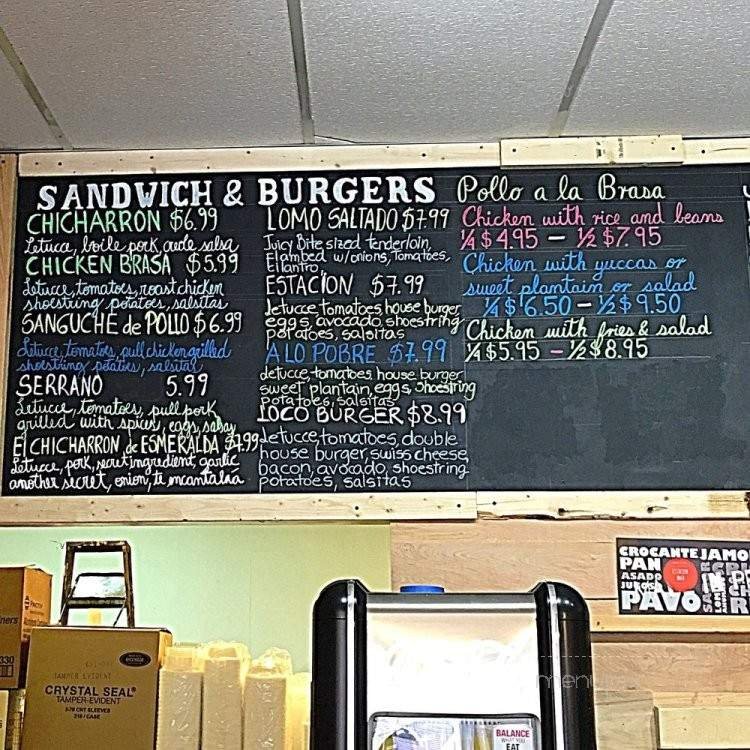 SANDWICH & BURGERS
CHICHARRON $6.99
Letuce, boile pork, aude salsa
CHICKEN BRASA $5.99
Letucce, tomatoes, roast chicken
shoestring potatoes, salsitas
SANGUCHE de POLLO $6.99
Letucce, tomatoes, pull chicken grilled
shoestring potatoes, salsitas
SERRANO 5.99
Letucce, tomatoes, pull pork
grilled with spices, eggs,
El CHICHARRON de ESMERALDA $7.99
Letucce, pork, secret ingredient, garlic
another secret, onion, te encantalra
LOMO SALTADO $7.99
Juicy Bite sized tenderloin,
Flambed w/onions, Tomatoes,
Cilantro
ESTACION $7.99
Letucce tomatoes, house burger
eggs, avocado, shoestring
potatoes, salsitas
A LO POBRE $7.99
Letucce, tomatoes, house burger
sweet plantain, eggs, shoestring
potatoes, salsitas
LOCO BURGER $8.99
Letucce, tomatoes, double
house burger, swiss cheese,
bacon, avocado, shoestring
potatoes, salsitas
Pollo a la Brasa
Chicken with rice and beans
1/4 $4.95 - 1/2 $7.95
Chicken with yuccas or
sweet plantain or salad
1/4 $6.50 - 1/2 $9.50
Chicken with fries & salad
1/4 $5.95 - 1/2 $8.95
CROCANTE JAMO
PAN
ASADO
JUGOS
PAVO
330
TAMPER EVIDENT
CRYSTAL SEAL®
TAMPER-EVIDENT
BALANCE
WHAT YOU
EAT
menu